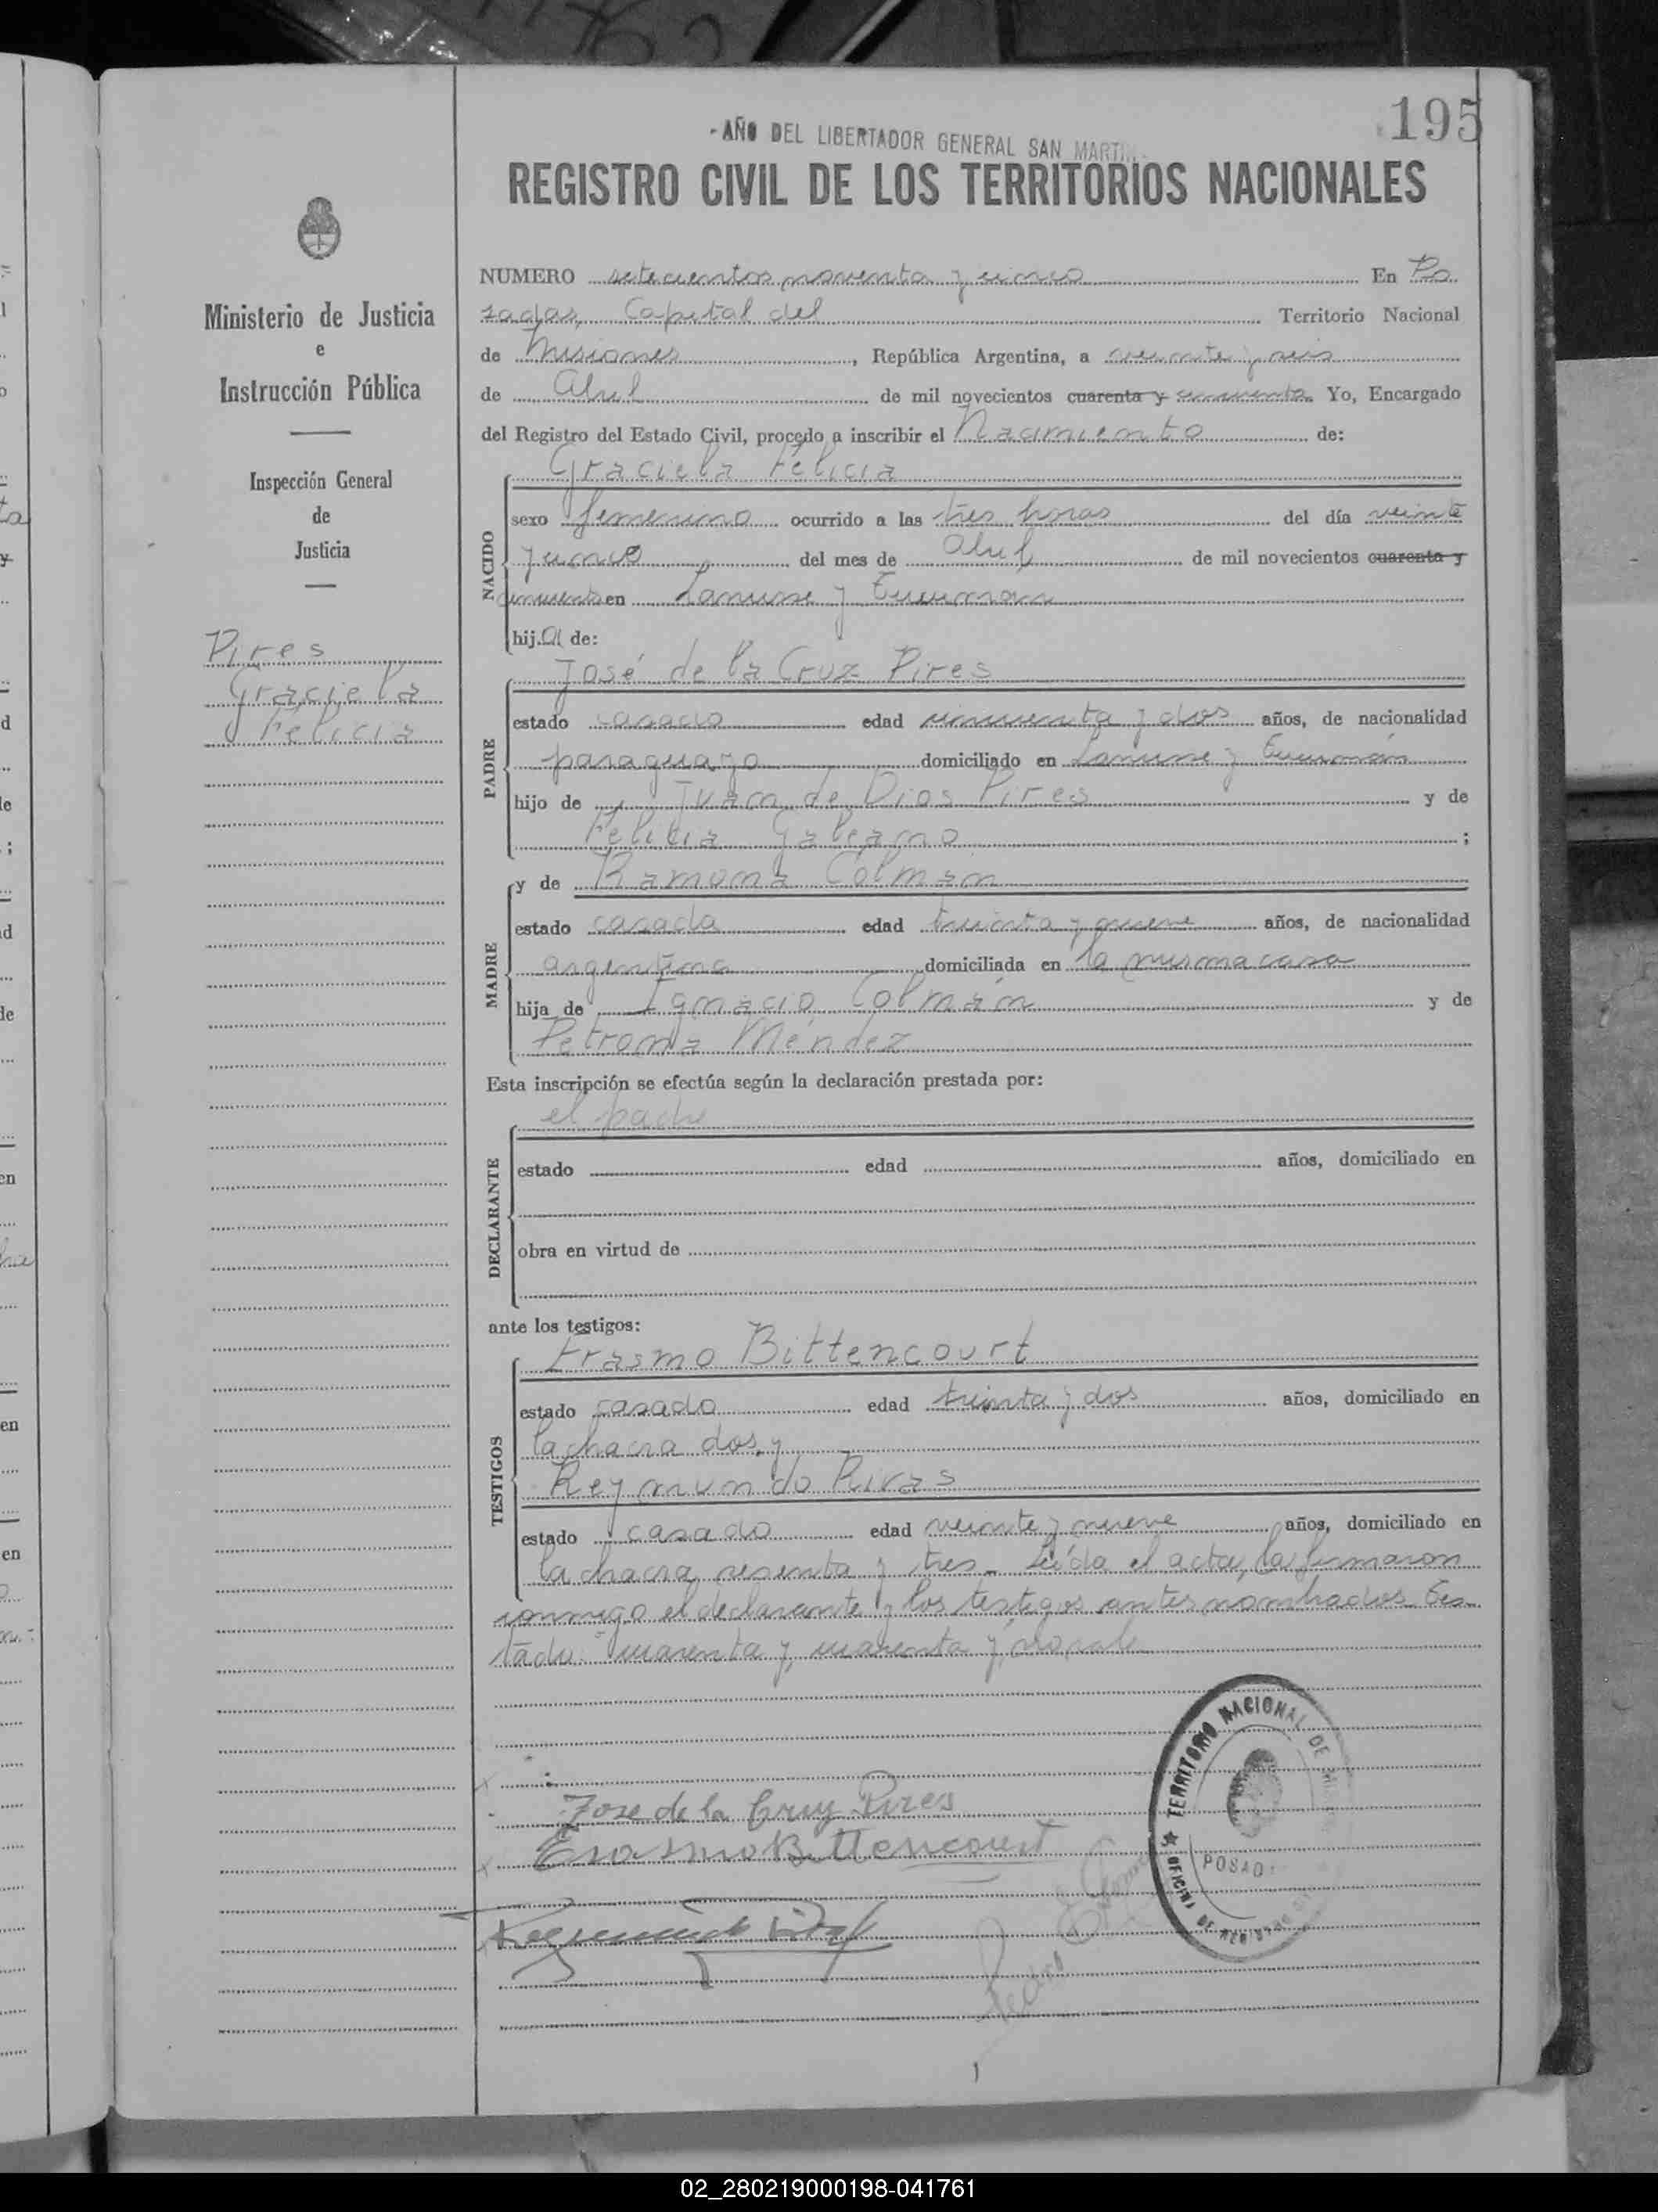 195
- AÑO DEL LIBERTADOR GENERAL SAN MARTIN -
REGISTRO CIVIL DE LOS TERRITORIOS NACIONALES
Ministerio de Justicia
e
Instrucción Pública
Inspección General
de
Justicia
Pires
Graciela
Felicia
NUMERO setecientos noventa y cinco En Po
sadas, Capital del Territorio Nacional
de Misiones, República Argentina, a veinte y seis
de Abril de mil novecientos cuarenta y cincuenta Yo, Encargado
del Registro del Estado Civil, procedo a inscribir el Nacimiento de:
Graciela Felicia
NACIDO
sexo femenino ocurrido a las tres horas del día veinte
y cinco del mes de Abril de mil novecientos cuarenta y
cincuenta en Lanusse y Tucumán
hija de:
José de la Cruz Pires
PADRE
estado casado edad cincuenta y dos años, de nacionalidad
paraguayo domiciliado en Lanusse y Tucumán
hijo de Juan de Dios Pires y de
Felicia Galeano ;
MADRE
y de Ramona Colmán
estado casada edad treinta y nueve años, de nacionalidad
argentina domiciliada en la misma casa
hija de Ignacio Colmán y de
Petrona Méndez
Esta inscripción se efectúa según la declaración prestada por:
el padre
DECLARANTE
estado edad años, domiciliado en
obra en virtud de
ante los testigos:
TESTIGOS
Erasmo Bittencourt
estado casado edad treinta y dos años, domiciliado en
la chacra dos, y
Reymundo Rivas
estado casado edad veinte y nueve años, domiciliado en
la chacra sesenta y tres - Leída el acta, la firmaron
conmigo el declarante y los testigos antes nombrados. Tes-
tado: cuarenta y, cuarenta y, no vale
Jose de la Cruz Pires
Erasmo Bittencourt
TERRITORIO NACIONAL DE
POSAD
02_280219000198-041761